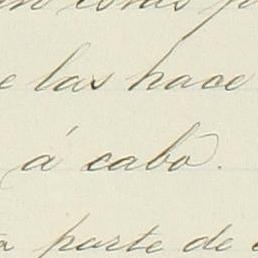 e las hace
á cabo.
parte de